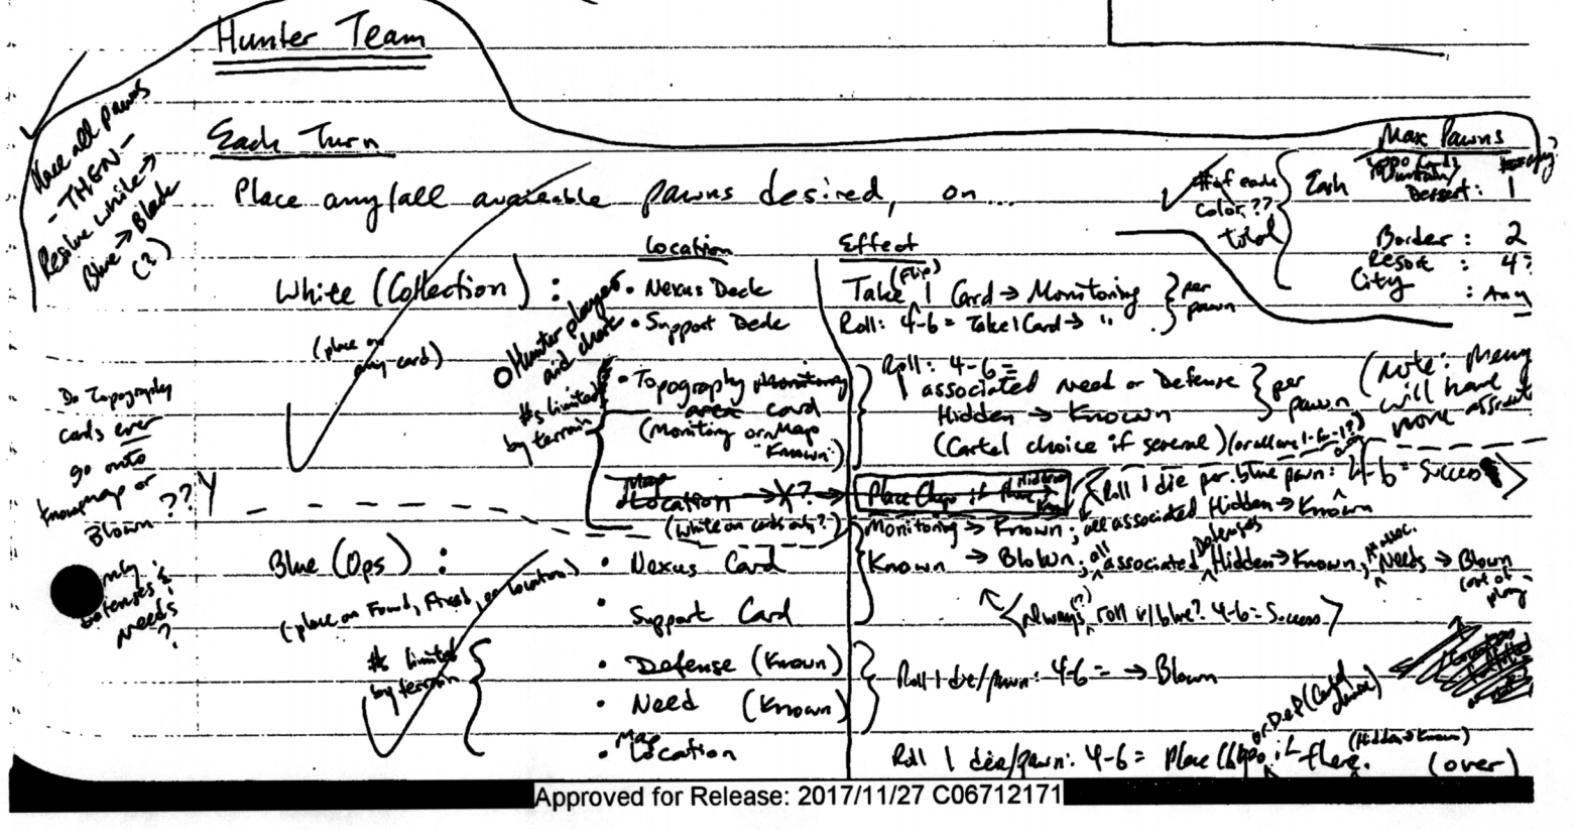 Hunter Team
Place all pawns
- THEN -
Resolve white →
Blue → Black
(?)
Each Turn
Place any/all available pawns desired, on...
Max Pawns
# of each
color??
total
Each
Topo Cards
Mountain/
Dessert: 1
Border: 2
Resort: 4?
City: Any
Location
Effect
White (Collection):
(place on
any card)
• Nexus Deck
Take (Flip) 1 Card → Monitoring
• Support Deck
Roll: 4-6 = Take 1 Card → "
} per
pawn
Hunter player
and chart
#s limited
by terrain
• Topography Monitoring
area card
(Monitoring or Map
"Known")
Roll: 4-6 =
1 associated Need or Defense
Hidden → Known
(Cartel choice if several)
} per
pawn
(note: Many
will have
more associated
Do Topography
cards ever
go onto
Known map or
Blown??
only
Defenses &
needs
?
Map
Location → X? →
Place Chapo if there
(White on cards only?)
<Roll 1 die per blue pawn: 4-6 = Success>
Monitoring → Known; all associated Hidden → Known
Blue (Ops):
(place on Found, Fixed, or Location)
• Nexus Card
Known → Blown; all associated Defenses Hidden → Known, assoc. Needs → Blown
(out of
play)
• Support Card
<Always(?) roll w/blue? 4-6 = Success>
#s limited
by terrain
• Defense (Known)
• Need (Known)
Roll 1 die/pawn: 4-6 = → Blown
• Map Location
Roll 1 die/pawn: 4-6 = Place Chapo if there.
or Def (Cartel
choice)
(Hidden → Known)
(over)
Approved for Release: 2017/11/27 C06712171